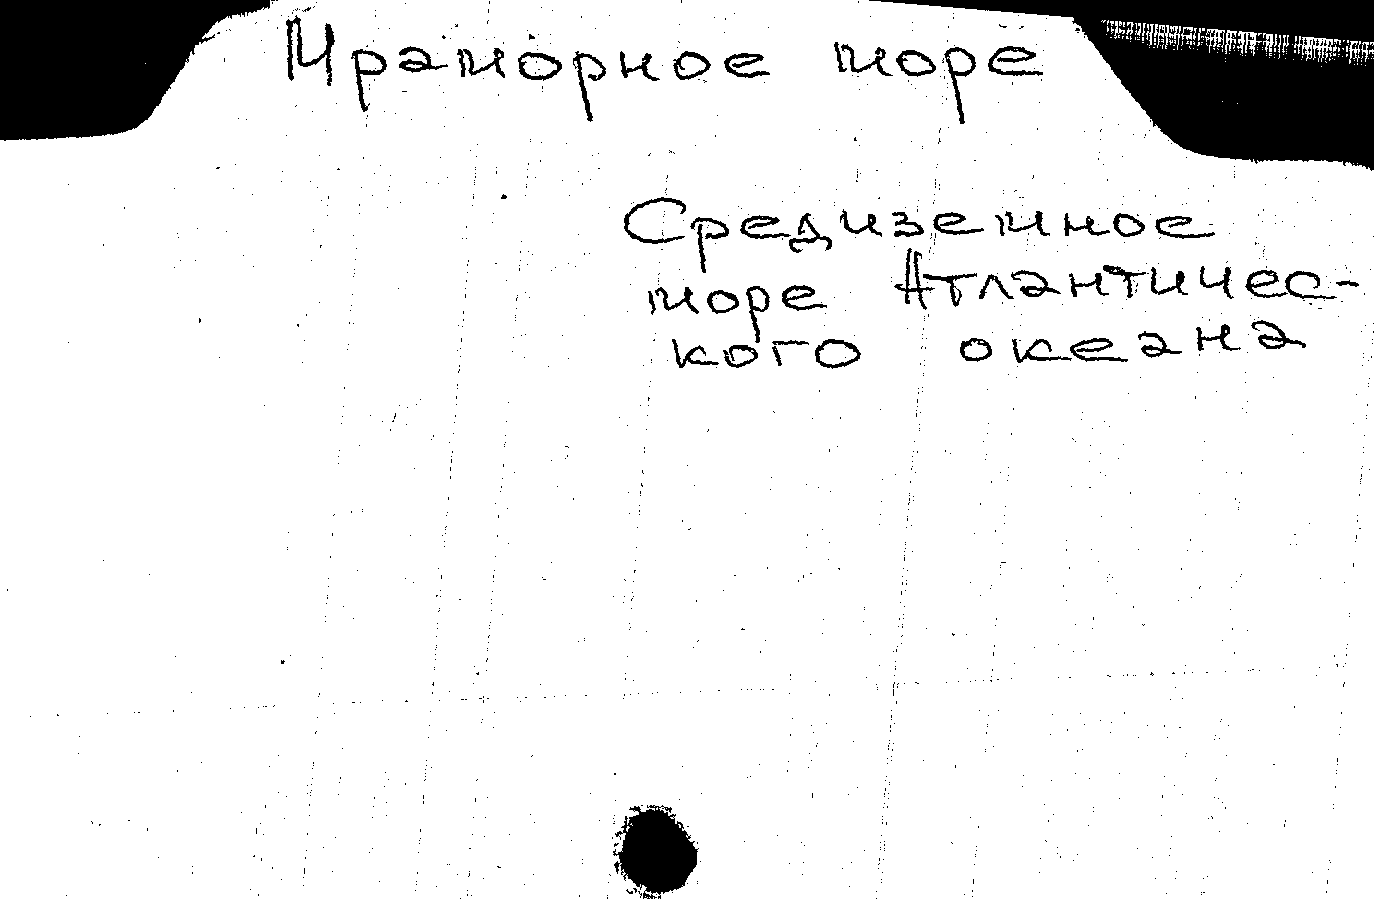 Мраморное море
Средиземное
море Атлантичес-
кого океана